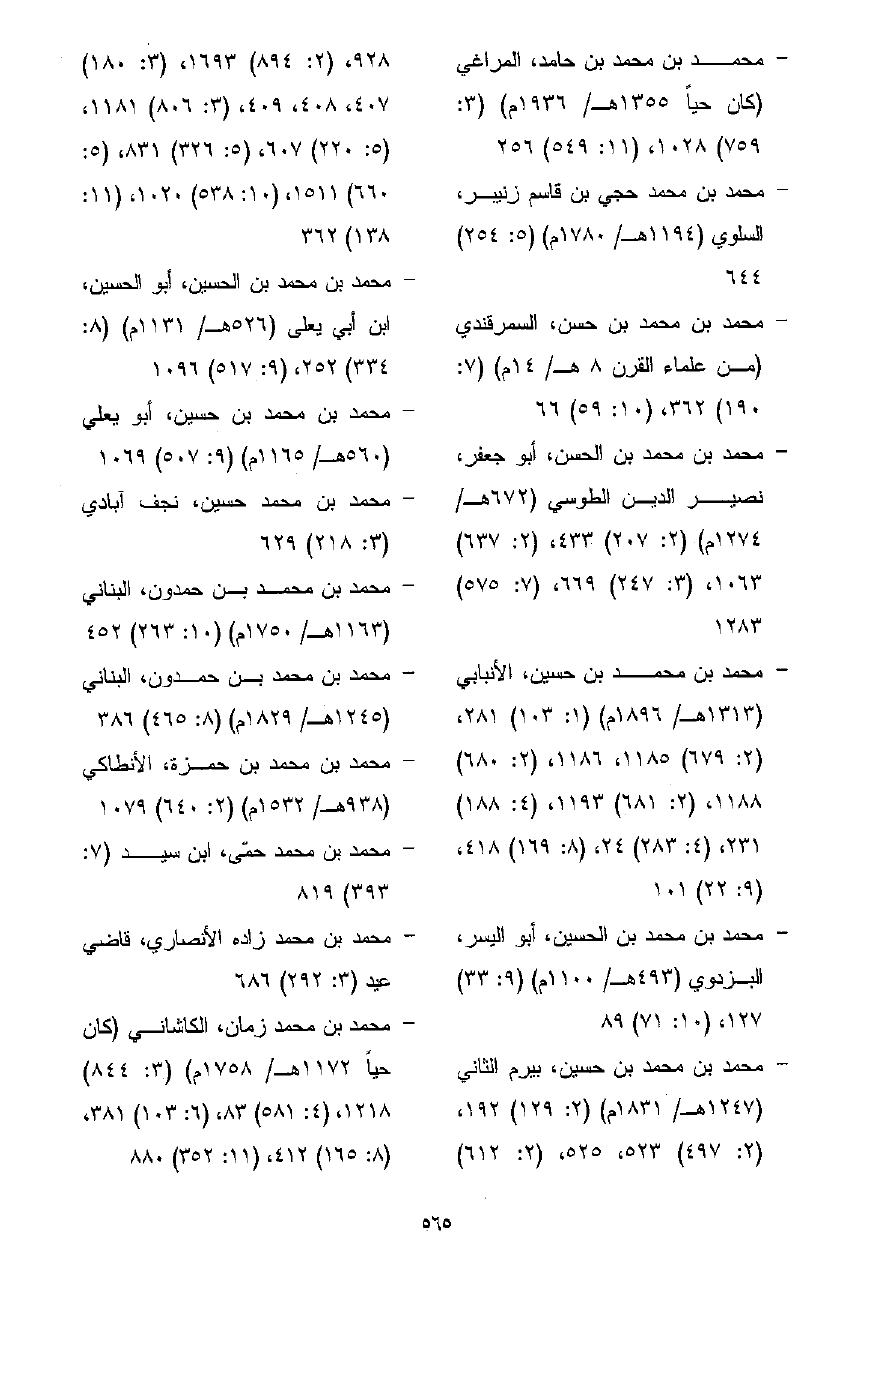 - محمد بن محمد بن حامد، المراغي
(كان حياً ١٣٥٥هـ/ ١٩٣٦م) (٣:
٧٥٩) ١٠٢٨، (١١: ٥٤٩) ٢٥٦
- محمد بن محمد حجي بن قاسم زنيبر،
السلوي (١١٩٤هـ/ ١٧٨٠م) (٥: ٢٥٤)
٦٤٤
- محمد بن محمد بن حسن، السمرقندي
(من علماء القرن ٨ هـ/ ١٤م) (٧:
١٩٠) ٣٦٢، (١٠: ٥٩) ٦٦
- محمد بن محمد بن الحسن، أبو جعفر،
نصير الدين الطوسي (٦٧٢هـ/
١٢٧٤م) (٢: ٢٠٧) ٤٣٣، (٢: ٦٣٧)
١٠٦٣، (٣: ٢٤٧) ٦٦٩، (٧: ٥٧٥)
١٢٨٣
- محمد بن محمد بن حسين، الأنبابي
(١٣١٣هـ/ ١٨٩٦م) (١: ١٠٣) ٢٨١،
(٢: ٦٧٩) ١١٨٥، ١١٨٦، (٢: ٦٨٠)
١١٨٨، (٢: ٦٨١) ١١٩٣، (٤: ١٨٨)
٢٣١، (٤: ٢٨٣) ٢٤، (٨: ١٦٩) ٤١٨،
(٩: ٢٢) ١٠١
- محمد بن محمد بن الحسين، أبو اليسر،
البزدوي (٤٩٣هـ/ ١١٠٠م) (٩: ٣٣)
١٢٧، (١٠: ٧١) ٨٩
- محمد بن محمد بن حسين، بيرم الثاني
(١٢٤٧هـ/ ١٨٣١م) (٢: ١٢٩) ١٩٢،
(٢: ٤٩٧) ٥٢٣، ٥٢٥، (٢: ٦١٢)
٩٢٨، (٢: ٨٩٤) ١٦٩٣، (٣: ١٨٠)
٤٠٧، ٤٠٨، ٤٠٩، (٣: ٨٠٦) ١١٨١،
(٥: ٢٢٠) ٦٠٧، (٥: ٣٢٦) ٨٣١، (٥:
٦٦٠) ١٥١١، (١٠: ٥٣٨) ١٠٢٠، (١١:
١٣٨) ٣٦٢
- محمد بن محمد بن الحسين، أبو الحسين،
ابن أبي يعلى (٥٢٦هـ/ ١١٣١م) (٨:
٣٣٤) ٢٥٢، (٩: ٥١٧) ١٠٩٦
- محمد بن محمد بن حسين، أبو يعلي
(٥٦٠هـ/ ١١٦٥م) (٩: ٥٠٧) ١٠٦٩
- محمد بن محمد حسين، نجف آبادي
(٣: ٢١٨) ٦٢٩
- محمد بن محمد بن حمدون، البناني
(١١٦٣هـ/ ١٧٥٠م) (١٠: ٢٦٣) ٤٥٢
- محمد بن محمد بن حمدون، البناني
(١٢٤٥هـ/ ١٨٢٩م) (٨: ٤٦٥) ٣٨٦
- محمد بن محمد بن حمزة، الأنطاكي
(٩٣٨هـ/ ١٥٣٢م) (٢: ٦٤٠) ١٠٧٩
- محمد بن محمد حمّى، ابن سيد (٧:
٣٩٣) ٨١٩
- محمد بن محمد زاده الأنصاري، قاضي
عيد (٣: ٢٩٢) ٦٨٦
- محمد بن محمد زمان، الكاشاني (كان
حياً ١١٧٢هـ/ ١٧٥٨م) (٣: ٨٤٤)
١٢١٨، (٤: ٥٨١) ٨٣، (٦: ١٠٣) ٣٨١،
(٨: ١٦٥) ٤١٢، (١١: ٣٥٢) ٨٨٠
٥٦٥